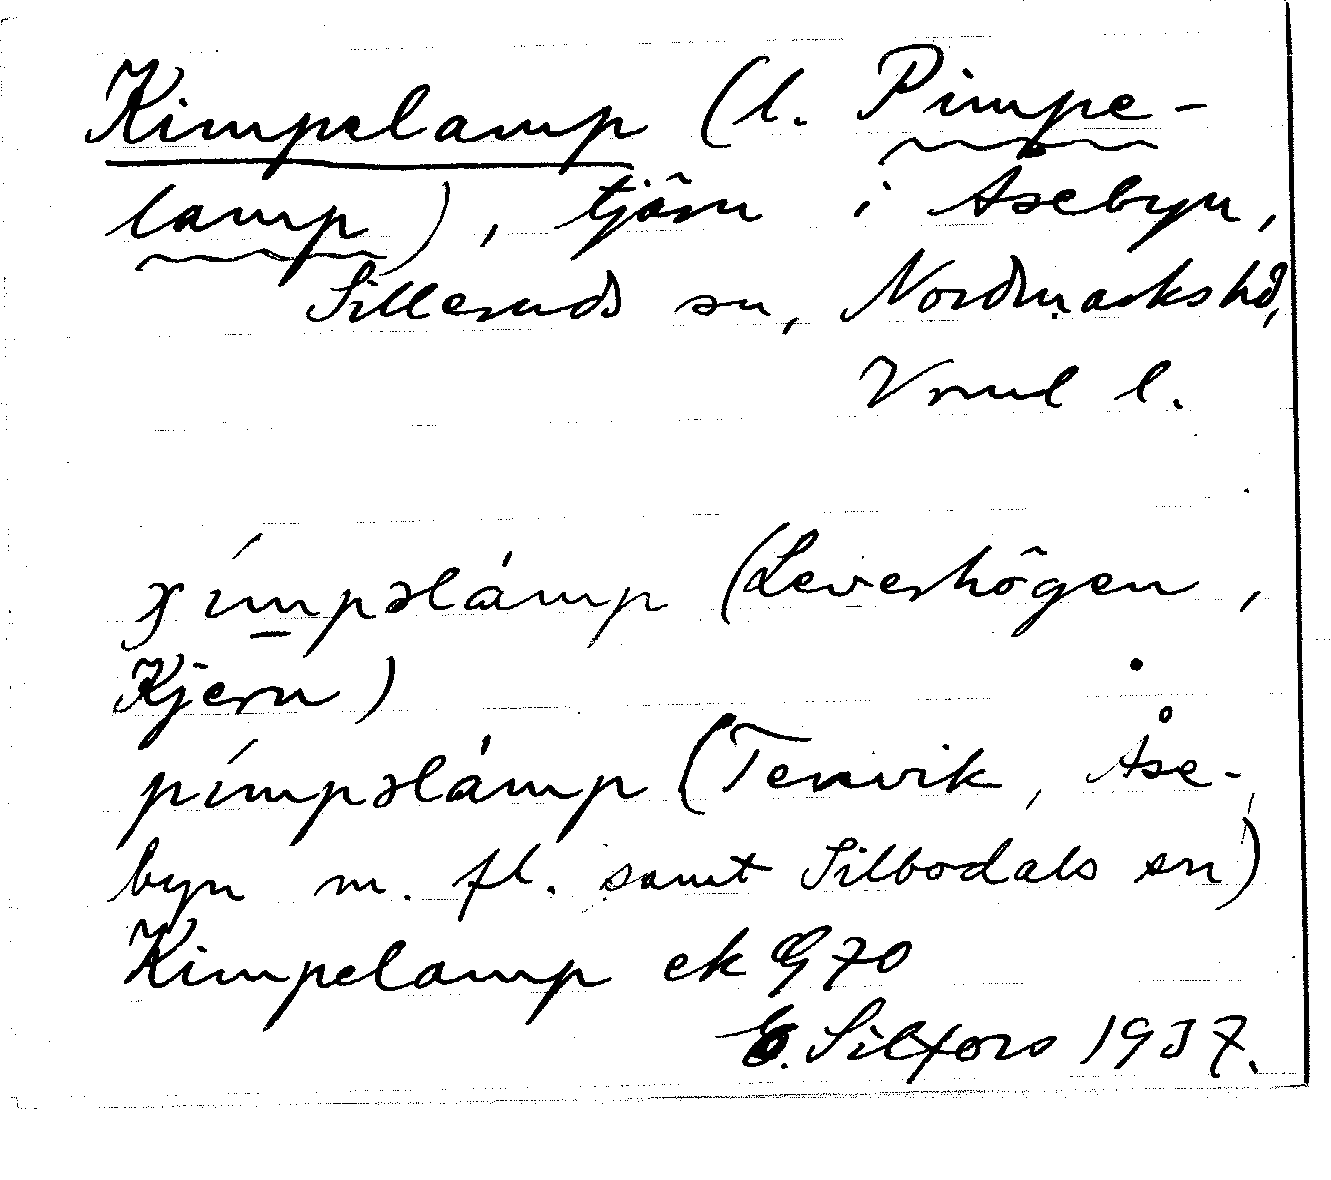 Kimpelamp (l. Pimpe-
lamp), tjärn i Åsebyn,
Silleruds sn, Nordmarks hd,
Vrml l.
ɣímpəlámp (Leverhögen,
Kjern)
pímpəlámp (Tenvik, Åse-
byn m. fl. samt Silbodals sn)
Kimpelamp ek G 70
E. Silfors 1937.